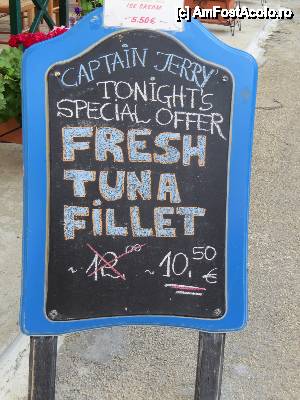 (c) AmFostAcolo.ro
ICE CREAM
5.50€
CAPTAIN JERRY
TONIGHTS
SPECIAL OFFER
FRESH
TUNA
FILLET
~12.00 ~10.50 €